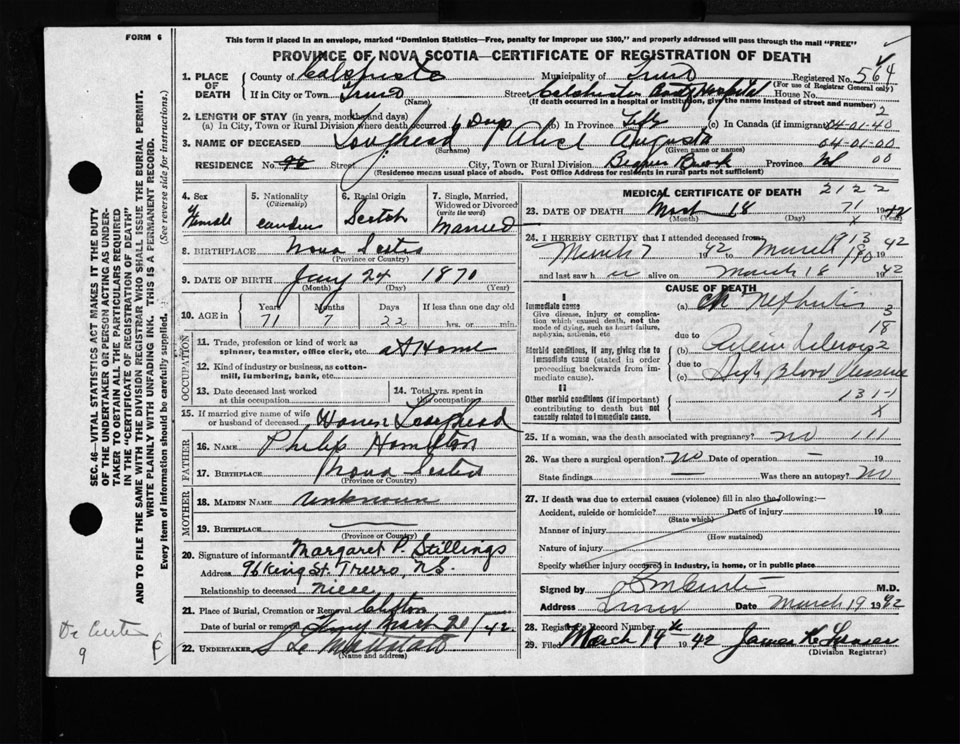 FORM 6
This form if placed in an envelope, marked "Dominion Statistics—Free, penalty for improper use $300," and properly addressed will pass through the mail "FREE"
PROVINCE OF NOVA SCOTIA—CERTIFICATE OF REGISTRATION OF DEATH
1. PLACE OF DEATH
County of Colchester Municipality of Truro Registered No. 564
(For use of Registrar General only)
If in City or Town Truro Street Colchester County Hospital House No.
(Name) (If death occurred in a hospital or institution, give the name instead of street and number)
2. LENGTH OF STAY (in years, months and days) 2
(a) In City, Town or Rural Division where death occurred 6 Days (b) In Province Life (c) In Canada (if immigrant) 04-01-40
3. NAME OF DECEASED Loughead Alice Augusta 04-01-00
(Surname) (Given name or names)
RESIDENCE No. 96 Street City, Town or Rural Division Beaver Brook Province NS 00
(Residence means usual place of abode. Post Office Address for residents in rural parts not sufficient)
4. Sex Female
5. Nationality (Citizenship)
6. Racial Origin Scotch
7. Single, Married, Widowed or Divorced (write the word) Married
8. BIRTHPLACE Nova Scotia
(Province or Country)
9. DATE OF BIRTH Jany 24 1870
(Month) (Day) (Year)
10. AGE in Years Months Days If less than one day old
71 7 22 hrs. or min.
OCCUPATION
11. Trade, profession or kind of work as spinner, teamster, office clerk, etc. at Home
12. Kind of industry or business, as cotton-mill, lumbering, bank, etc.
13. Date deceased last worked at this occupation
14. Total yrs. spent in this occupation
15. If married give name of wife or husband of deceased Loughead
FATHER
16. NAME Philip Hamilton
17. BIRTHPLACE Nova Scotia
(Province or Country)
MOTHER
18. MAIDEN NAME Unknown
19. BIRTHPLACE
(Province or Country)
20. Signature of informant Margaret P. Stillings
Address 96 King St. Truro, N.S.
Relationship to deceased niece
21. Place of Burial, Cremation or Removal Clifton
Date of burial or removal March 20/42
22. UNDERTAKER
(Name and address)
MEDICAL CERTIFICATE OF DEATH 2122
23. DATE OF DEATH March 18 71 1942
(Month) (Day) X
24. I HEREBY CERTIFY that I attended deceased from 913
March 7 1942 to March 18 1942
190
and last saw her alive on March 18 1942
CAUSE OF DEATH
I
Immediate cause
Give disease, injury or complication which caused death, not the mode of dying, such as heart failure, asphyxia, asthenia, etc
(a) Ch Nephritis 3
18
due to
Morbid conditions, if any, giving rise to immediate cause (stated in order proceeding backwards from immediate cause).
(b) 2
due to
(c) High Blood Pressure
II
Other morbid conditions (if important) contributing to death but not causally related to immediate cause.
131-1
X
25. If a woman, was the death associated with pregnancy? no 111
26. Was there a surgical operation? No Date of operation — 19
State findings Was there an autopsy? No
27. If death was due to external causes (violence) fill in also the following:—
Accident, suicide or homicide? Date of injury 19
(State which)
Manner of injury
(How sustained)
Nature of injury
Specify whether injury occurred in industry, in home, or in public place
Signed by M.D.
Address Truro Date March 19 1942
28. Registrar's Record Number
29. Filed March 19th 1942 James
(Division Registrar)
SEC. 46—VITAL STATISTICS ACT MAKES IT THE DUTY OF THE UNDERTAKER OR PERSON ACTING AS UNDERTAKER TO OBTAIN ALL THE PARTICULARS REQUIRED IN THE "CERTIFICATE OF REGISTRATION OF DEATH" AND TO FILE THE SAME WITH THE DIVISION REGISTRAR WHO SHALL ISSUE THE BURIAL PERMIT.
WRITE PLAINLY WITH UNFADING INK. THIS IS A PERMANENT RECORD.
Every item of information should be carefully supplied. (See reverse side for instructions.)
9